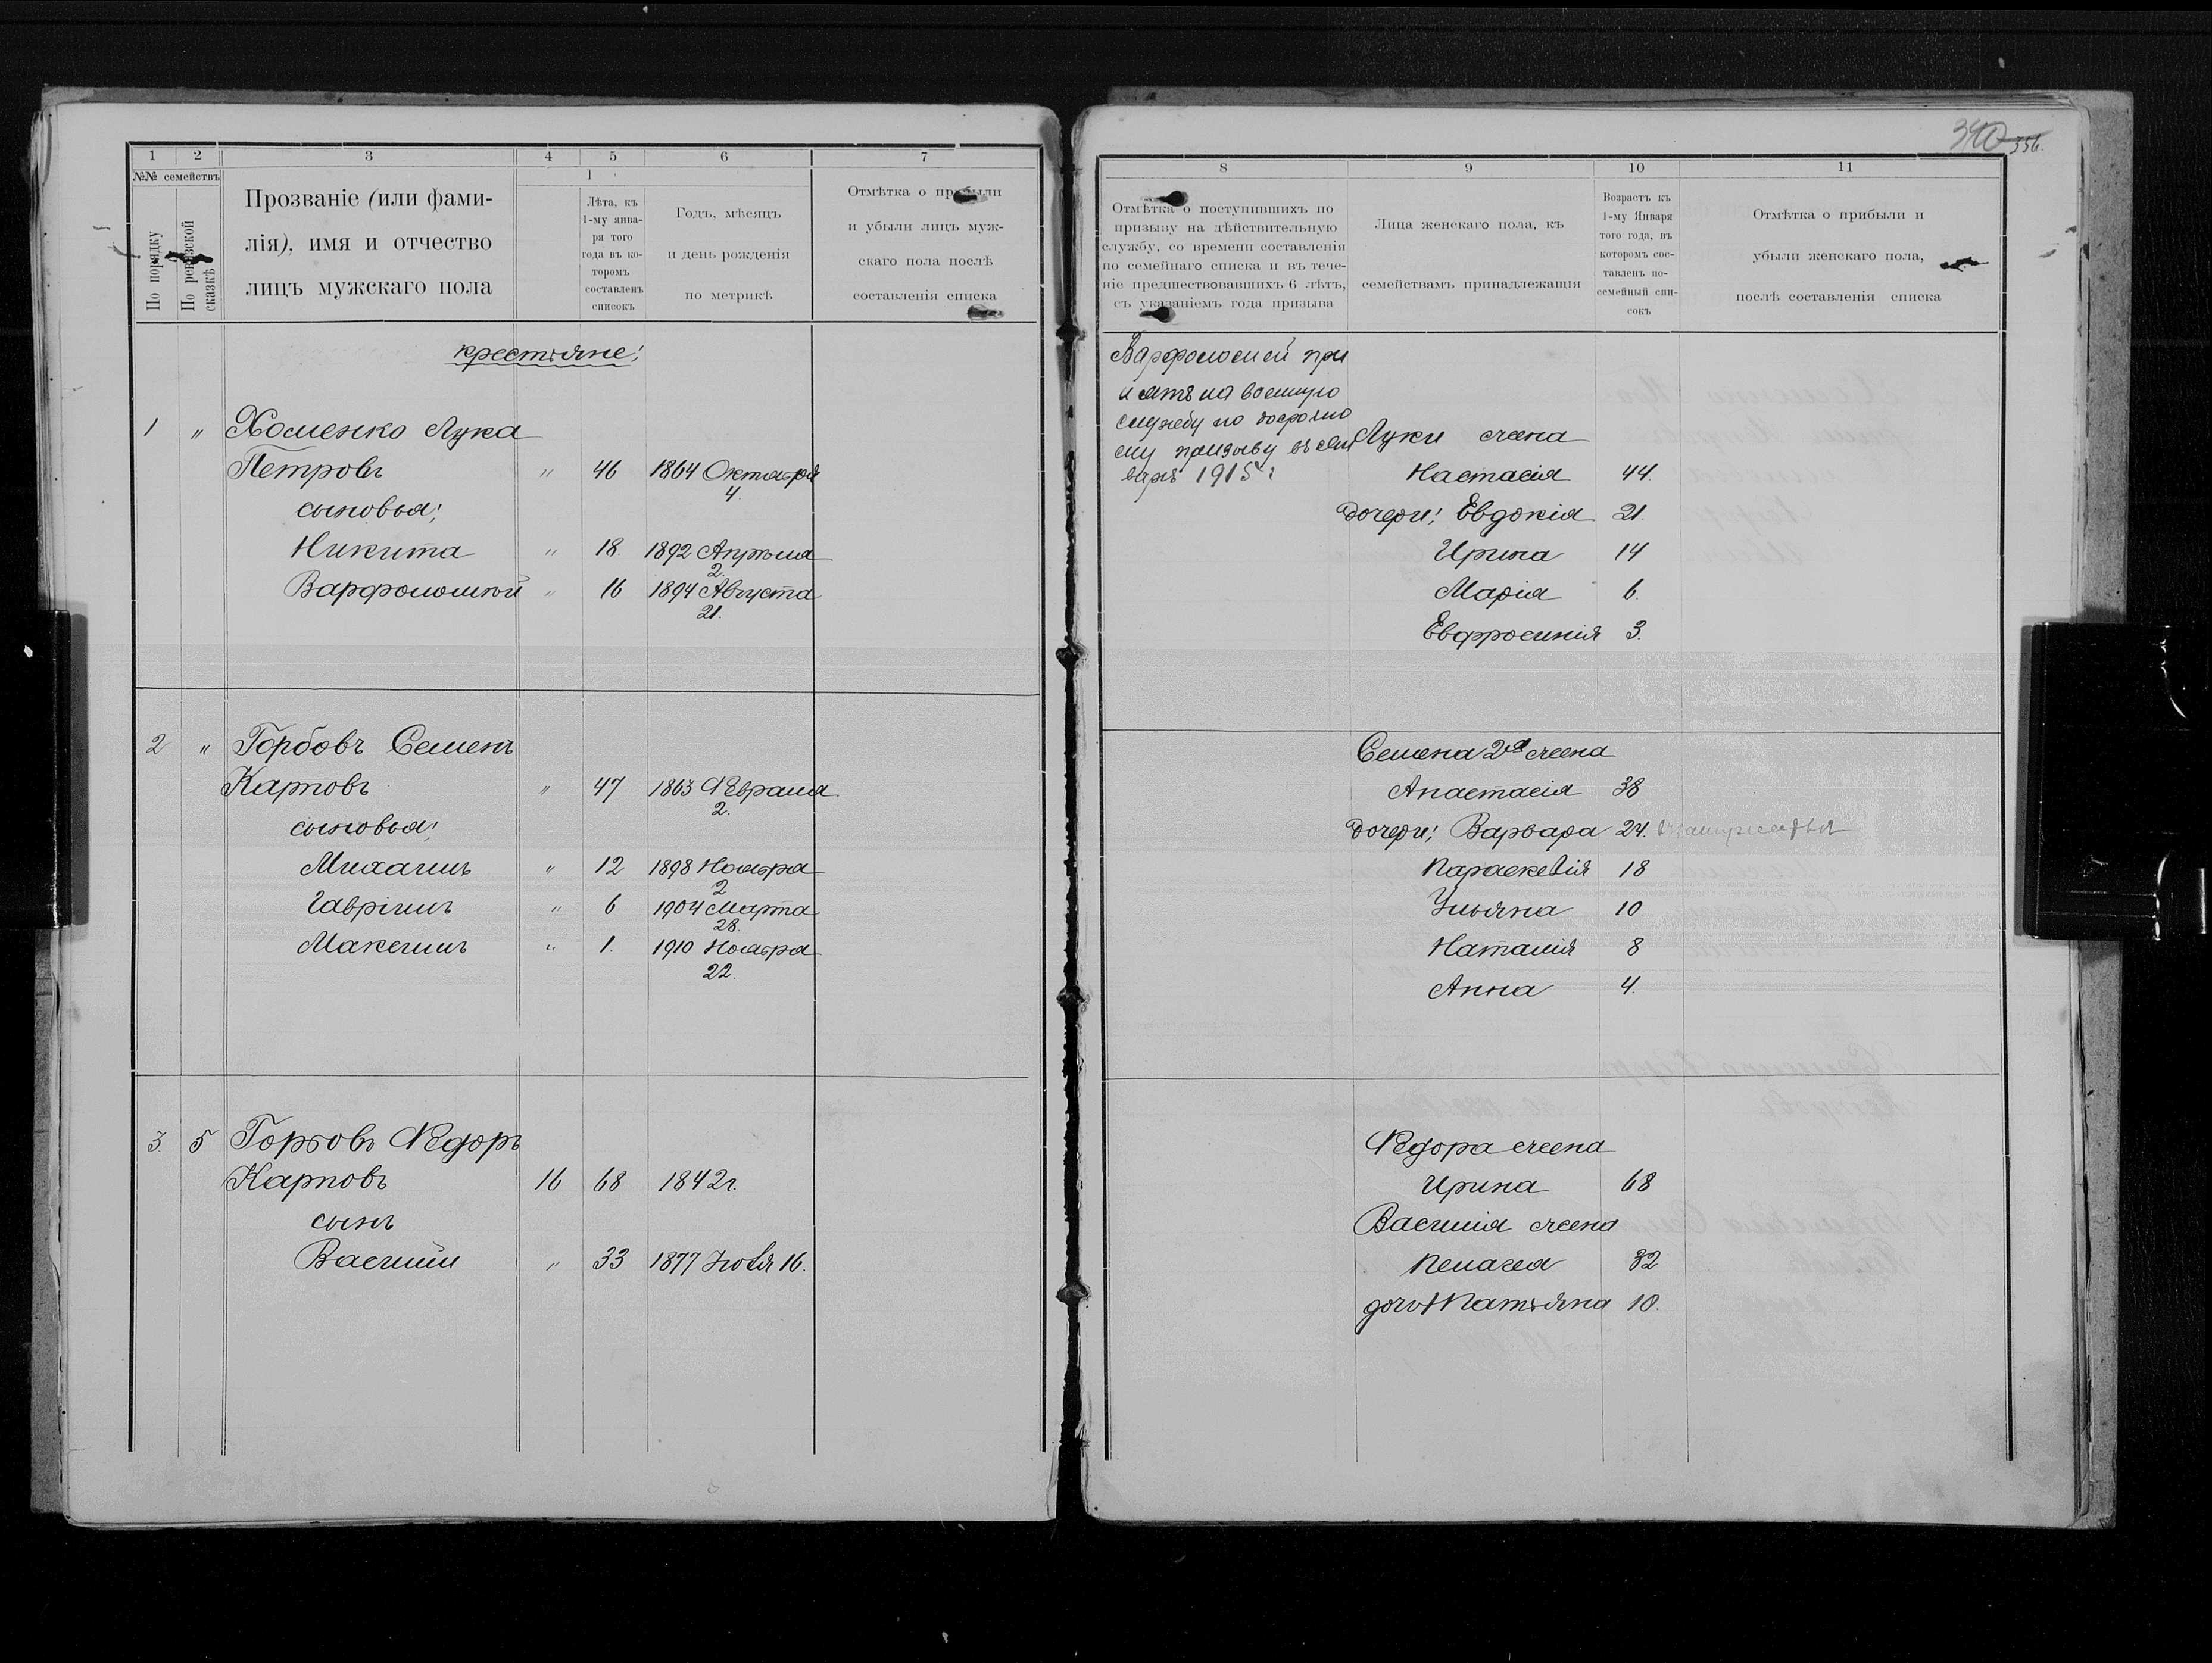 1 2 3 4 5 6 7
№№ семействъ
По порядку
По ревизской сказкѣ
Прозваніе (или фами-
лія), имя и отчество
лицъ мужскаго пола
1
Лѣта, къ
1-му янва-
ря того
года въ ко-
торомъ
составленъ
списокъ
Годъ, мѣсяцъ
и день рожденія
по метрикѣ
Отмѣтка о прибыли
и убыли лицъ муж-
скаго пола послѣ
составленія списка
крестьяне:
1 " Хоменко Лука
Петровъ " 46 1864 Октября
4.
сыновья:
Никита " 18. 1892 Апрѣля
2.
Варфоломѣй " 16 1894 Августа
21.
2 " Горбовъ Семенъ
Карповъ " 47 1863 Февраля
2.
сыновья:
Михаилъ " 12 1898 Ноября
2
Гавріилъ " 6 1904 Марта
28.
Максимъ " 1. 1910 Ноября
22.
3. 5 Горбовъ Федоръ
Карповъ 16 68 1842 г.
сынъ
Василій " 33 1877 Іюля 16.
340 356.
8 9 10 11
Отмѣтка о поступившихъ по
призыву на дѣйствительную
службу, со времени составленія
по семейнаго списка и въ тече-
ніе предшествовавшихъ 6 лѣтъ,
съ указаніемъ года призыва
Лица женскаго пола, къ
семействамъ принадлежащія
Возрастъ къ
1-му Января
того года, въ
которомъ сос-
тавленъ по-
семейный спи-
сокъ
Отмѣтка о прибыли и
убыли женскаго пола,
послѣ составленія списка
Варфоломей при
нятъ на военную
службу по досрочно
му призыву въ ян
варѣ 1915 г
Луки жена
Настасія 44.
дочери: Евдокія 21.
Ирина 14
Марія 6.
Евфросинія 3.
Семена 2я жена
Анастасія 38
дочери: Варвара 24.
Параскевія 18
Ульяна 10
Наталія 8
Анна 4.
Федора жена
Ирина 68
Василія жена
Пелагея 32
дочь Татьяна 10.